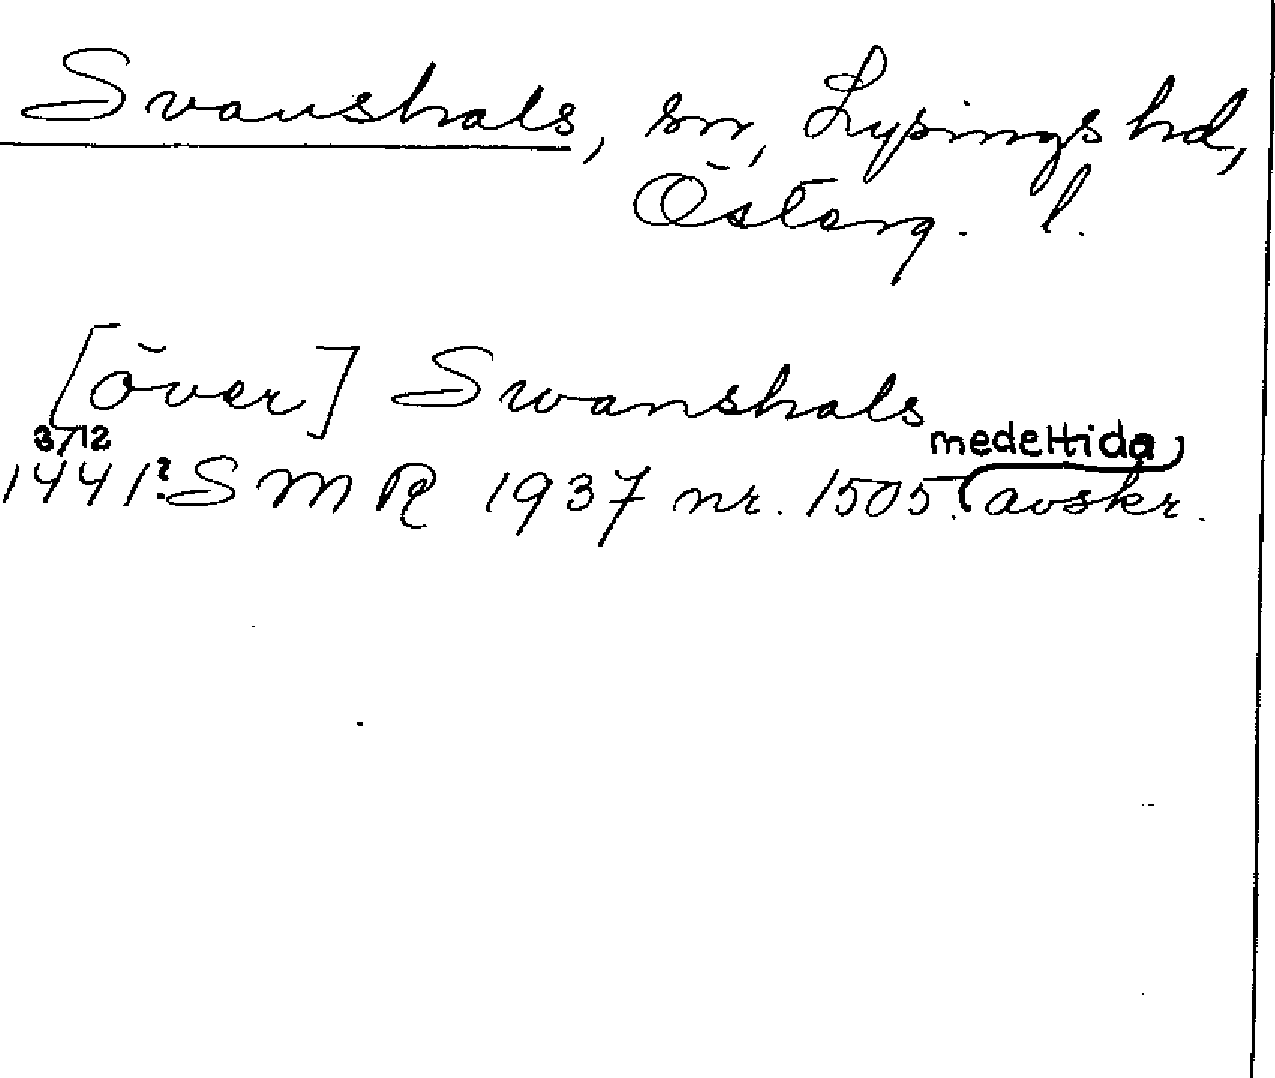 Svanshals, sn, Lysings hd,
Österg. l.
[över] Swanshals
3/12 medeltida
1441? SMR 1937 nr. 1505. avskr.